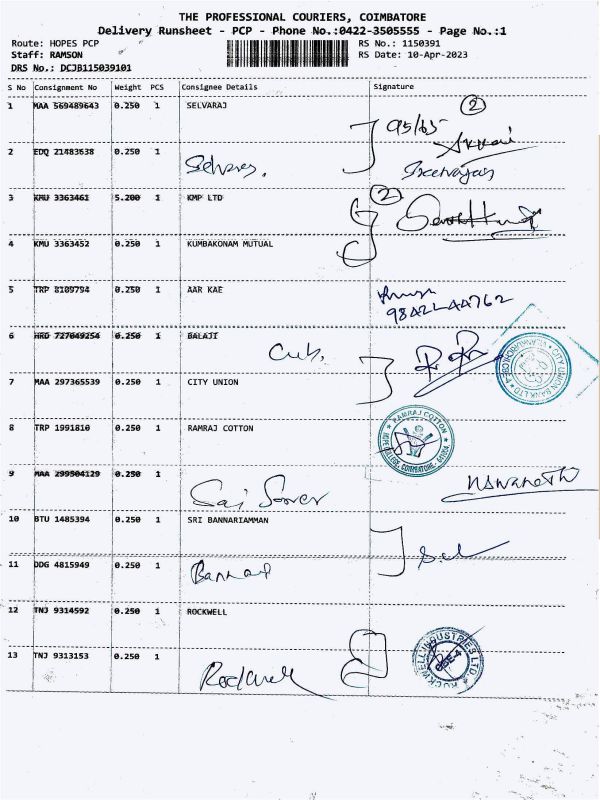 THE PROFESSIONAL COURIERS, COIMBATORE
Delivery Runsheet - PCP - Phone No.:0422-3505555 - Page No.:1
Route: HOPES PCP
RS No.: 1150391
Staff: RAMSON
RS Date: 10-Apr-2023
DRS No.: DCJB115039101
S No Consignment No Weight PCS Consignee Details Signature
1 MAA 569489643 0.250 1 SELVARAJ
2
95/65
2 EDQ 21483638 0.250 1
Selvaraj.
3 KMU 3363461 5.200 1 KMP LTD
2
4 KMU 3363452 0.250 1 KUMBAKONAM MUTUAL
5 TRP 8109794 0.250 1 AAR KAE
6 HRG 727049254 0.250 1 BALAJI
Cub,
CITY UNION BANK LTD
7 MAA 297365539 0.250 1 CITY UNION
8 TRP 1991810 0.250 1 RAMRAJ COTTON
RAMRAJ COTTON
HOPE COLLEGE, COIMBATORE
9 MAA 299504129 0.250 1
Sai
10 BTU 1485394 0.250 1 SRI BANNARIAMMAN
11 DDG 4815949 0.250 1
12 TNJ 9314592 0.250 1 ROCKWELL
ROCKWELL INDUSTRIES LTD.
13 TNJ 9313153 0.250 1
Rockwell